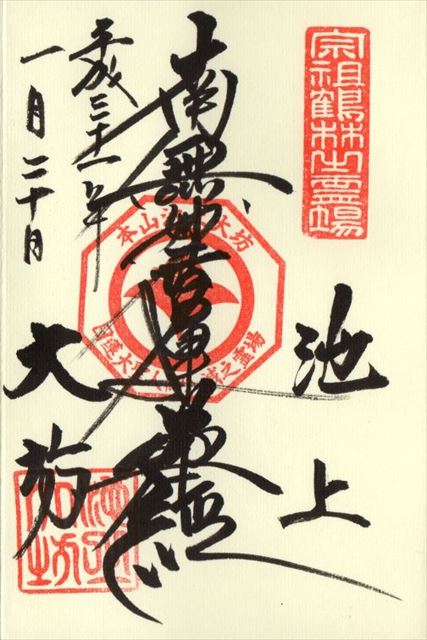 宗祖鶴林之霊場
池上
南無妙法蓮華経
本山
大坊
日蓮大
之霊場
平成三十一年
一月二十日
大坊